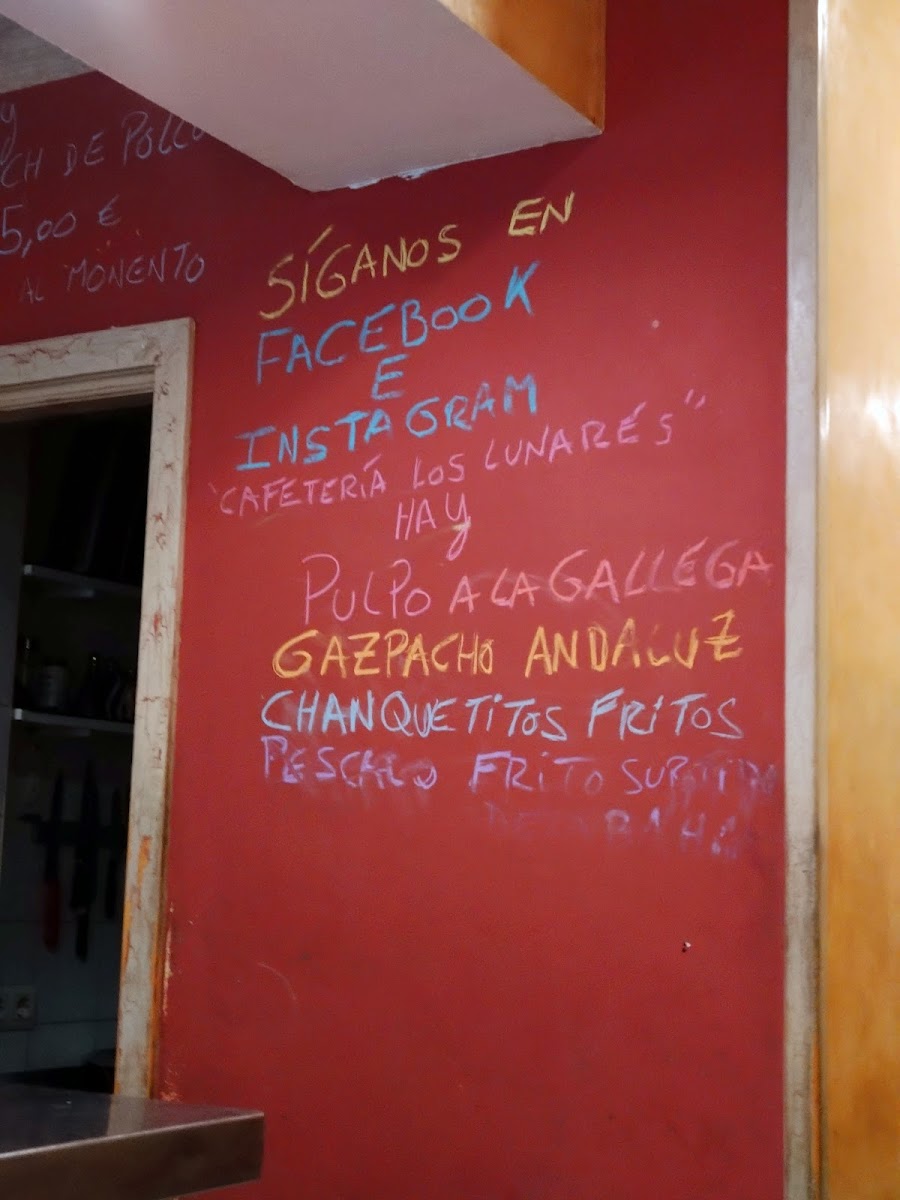 Y
CH DE POLLO
5,00 €
AL MONENTO
SÍGANOS EN
FACEBOOK
E
INSTAGRAM
"CAFETERÍA LOS LUNARES"
HAY
PULPO A LA GALLEGA
GAZPACHO ANDALUZ
CHANQUETITOS FRITOS
PESCADO FRITO SURTIDO